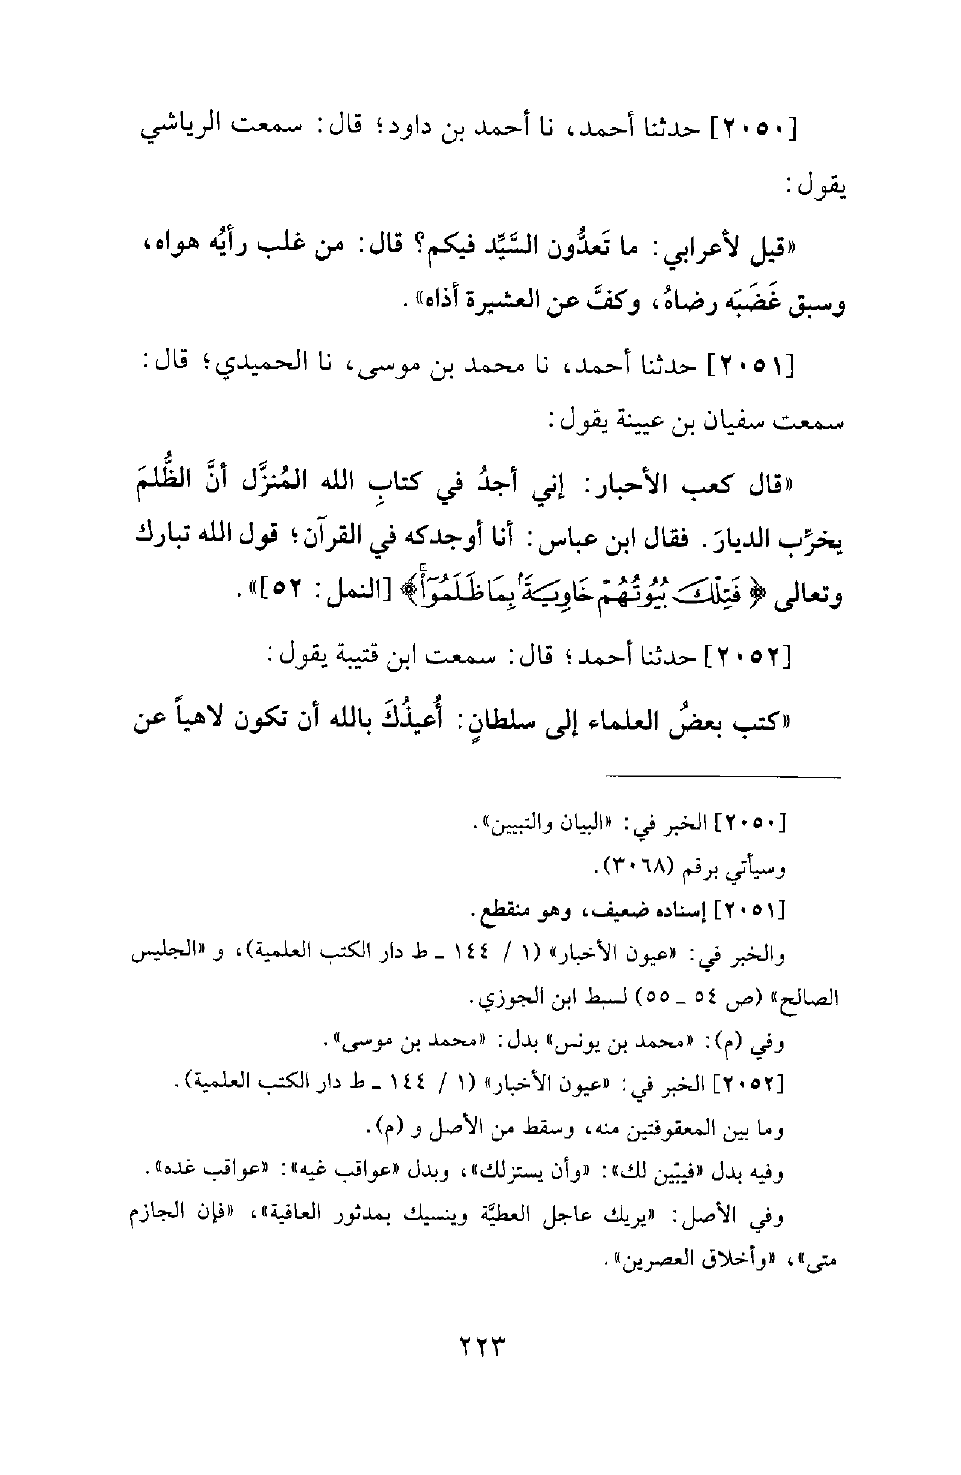 [٢٠٥٠] حدثنا أحمد، نا أحمد بن داود؛ قال: سمعت الرياشي
يقول:
«قيل لأعرابي: ما تَعدُّون السَّيِّد فيكم؟ قال: من غلب رأيُه هواه،
وسبق غَضَبَه رضاهُ، وكفَّ عن العشيرة أذاه».
[٢٠٥١] حدثنا أحمد، نا محمد بن موسى، نا الحميدي؛ قال:
سمعت سفيان بن عيينة يقول:
«قال كعب الأحبار: إني أجدُ في كتابِ الله المُنزَّل أنَّ الظُّلمَ
يخرِّب الديارَ. فقال ابن عباس: أنا أوجدكه في القرآن؛ قول الله تبارك
وتعالى ﴿فَتِلْكَ بُيُوتُهُمْ خَاوِيَةً بِمَا ظَلَمُوٓا۟﴾ [النمل: ٥٢]».
[٢٠٥٢] حدثنا أحمد؛ قال: سمعت ابن قتيبة يقول:
«كتب بعضُ العلماء إلى سلطانٍ: أُعيذُكَ بالله أن تكون لاهياً عن
[٢٠٥٠] الخبر في: «البيان والتبيين».
وسيأتي برقم (٣٠٦٨).
[٢٠٥١] إسناده ضعيف، وهو منقطع.
والخبر في: «عيون الأخبار» (١ / ١٤٤ - ط دار الكتب العلمية)، و «الجليس
الصالح» (ص ٥٤ - ٥٥) لسبط ابن الجوزي.
وفي (م): «محمد بن يونس» بدل: «محمد بن موسى».
[٢٠٥٢] الخبر في: «عيون الأخبار» (١ / ١٤٤ - ط دار الكتب العلمية).
وما بين المعقوفتين منه، وسقط من الأصل و (م).
وفيه بدل «فيبّين لك»: «وأن يستزلك»، وبدل «عواقب غيه»: «عواقب غده».
وفي الأصل: «يريك عاجل العطيَّة وينسيك بمدثور العافية»، «فإن الجازم
متى»، «وأخلاق العصرين».
٢٢٣